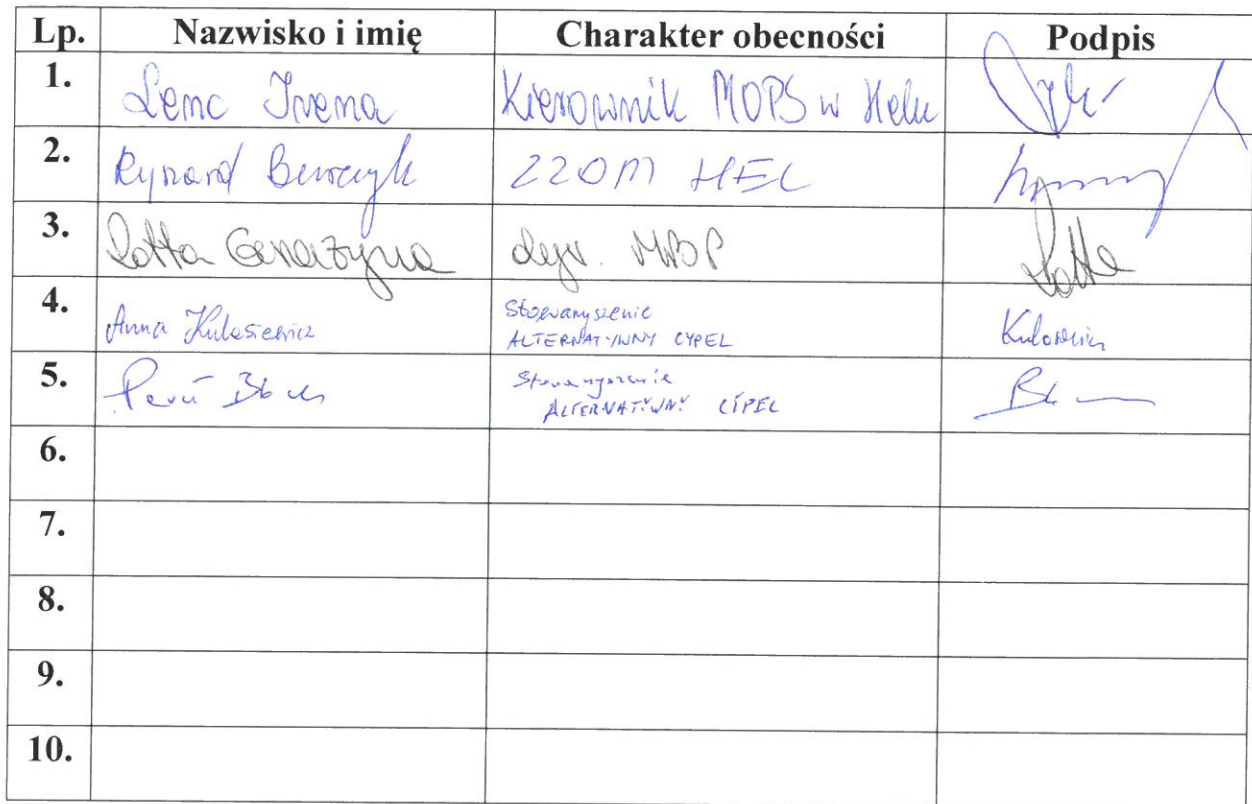 Lp. Nazwisko i imię Charakter obecności Podpis
1. Lenc Irena Kierownik MOPS w Helu
2. Ryszard ZZOM HEL
3. Lotta Grażyna dyr. MBP Lotta
4. Anna Kulasiewicz Stowarzyszenie
ALTERNATYWNY CYPEL
5. Stowarzyszenie
ALTERNATYWNY CYPEL
6.
7.
8.
9.
10.